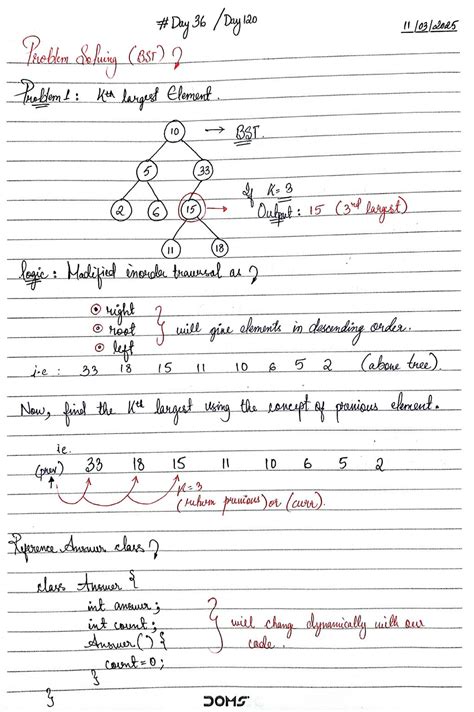 # Day 36 / Day 120
11/03/2025
Problem Solving (BST)
Problem 1: Kth largest Element.
10 → BST.
5 33
2 6 15 → If K = 3
Output: 15 (3rd largest)
11 18
logic: Modified inorder traversal as
right
root
left
will give elements in descending order.
i.e: 33 18 15 11 10 6 5 2 (above tree).
Now, find the Kth largest using the concept of previous element.
i.e.
(prev) 33 18 15 11 10 6 5 2
K=3
(return previous) or (curr).
Reference Answer class
class Answer {
int answer;
int count;
Answer() {
count = 0;
}
}
will change dynamically with our
code.
DOMS